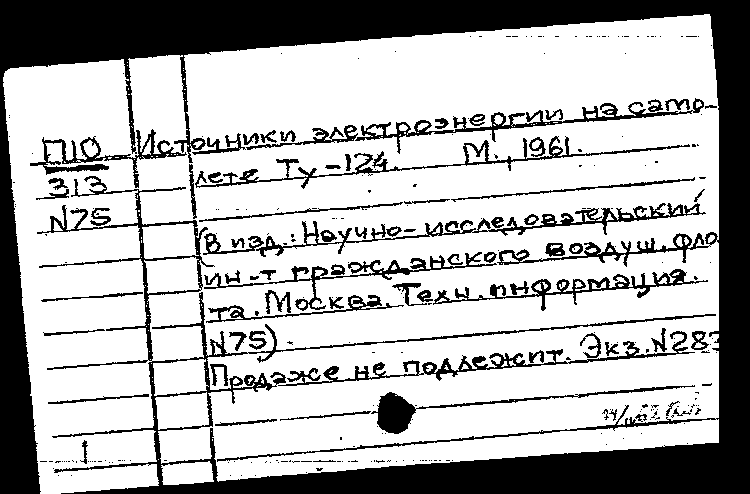 П10 Источники электроэнергии на само-
313 лете Ту-124. М., 1961.
N75
(В изд.: Научно-исследовательский
ин-т гражданского воздуш. фло
та. Москва. Техн. информация.
N75).
Продаже не подлежит. Экз. N283
1